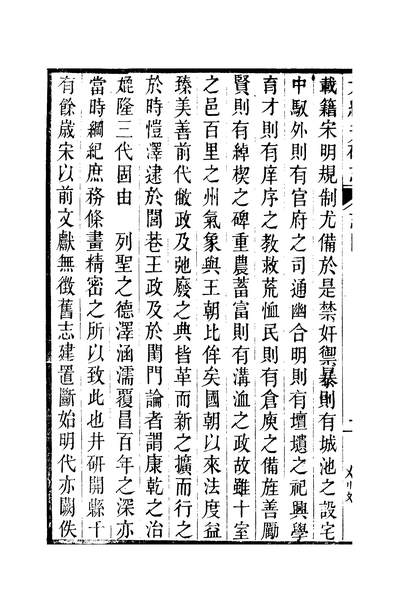 載籍宋明規制尤備於是禁奸禦暴則有城池之設宅
中馭外則有官府之司通幽合明則有壇壝之祀興學
育才則有庠序之教救荒恤民則有倉庾之備旌善勵
賢則有綽楔之碑重農蓄富則有溝洫之政故雖十室
之邑百里之州氣象與王朝比侔矣國朝以來法度益
臻美善前代敝政及弛廢之典皆革而新之擴而行之
於時愷澤逮於閭巷王政及於閨門論者謂康乾之治
媲隆三代固由　列聖之德澤涵濡覆昌百年之深亦
當時綱紀庶務條畫精密之所以致此也井研開縣千
有餘歲宋以前文獻無徵舊志建置斷始明代亦闕佚